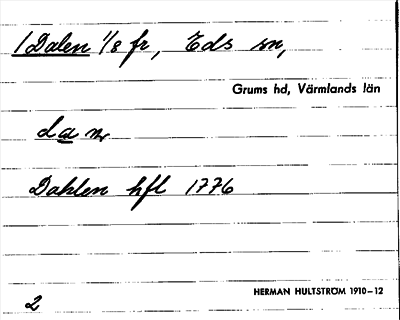 1 Dalen 1/8 fr, Eds sn,
Grums hd, Värmlands län
Dahlen hfl 1776
HERMAN HULTSTRÖM 1910–12
2